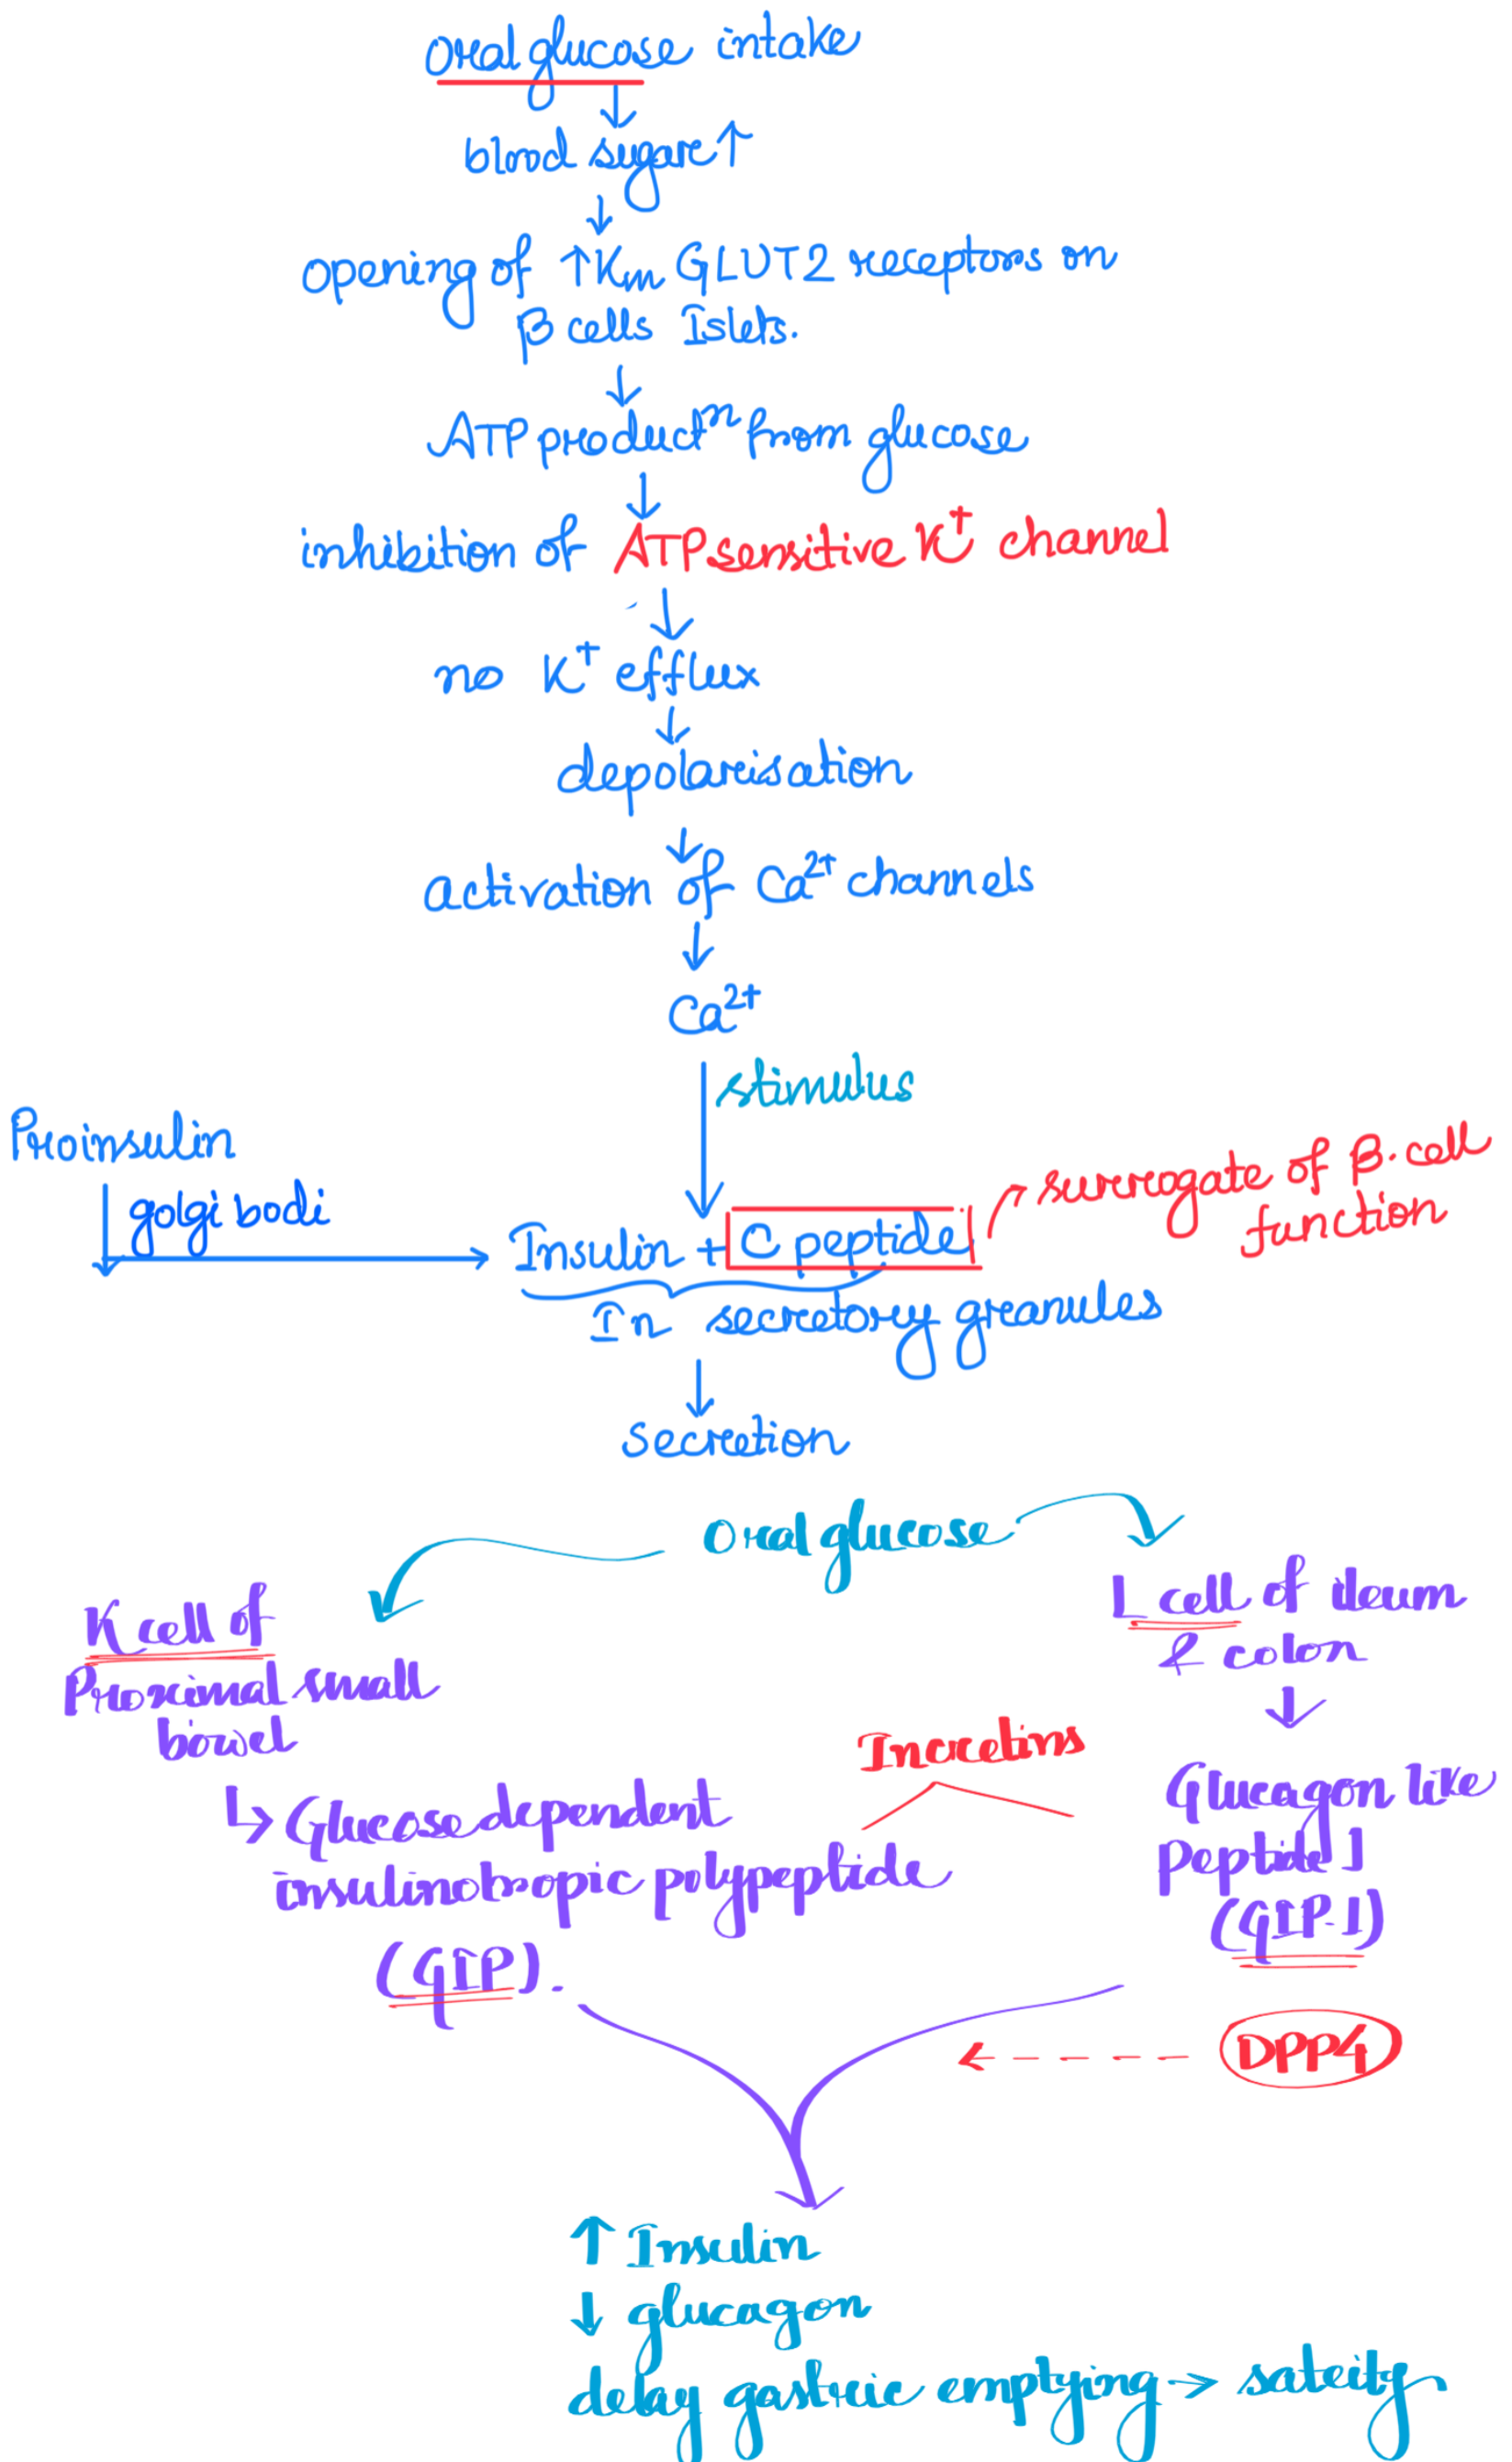 Oral glucose intake
blood sugar ↑
opening of ↑Km GLUT2 receptors on
β cells Islets.
ATP productⁿ from glucose
inhibition of ATP sensitive K⁺ channel
no K⁺ efflux
depolarisation
activation of Ca²⁺ channels
Ca²⁺
stimulus
Proinsulin
golgi bodi
Insulin + C peptide
surrogate of β-cell
function
In secretory granules
secretion
Oral glucose
K cell of
Proximal small
bowel
L cell of ileum
& colon
Incretins
Glucose dependent
insulinotropic polypeptide
(GIP).
Glucagon like
Peptide 1
(GIP-1)
DPP4
↑ Insulin
↓ glucagon
delay gastric emptying → sateity